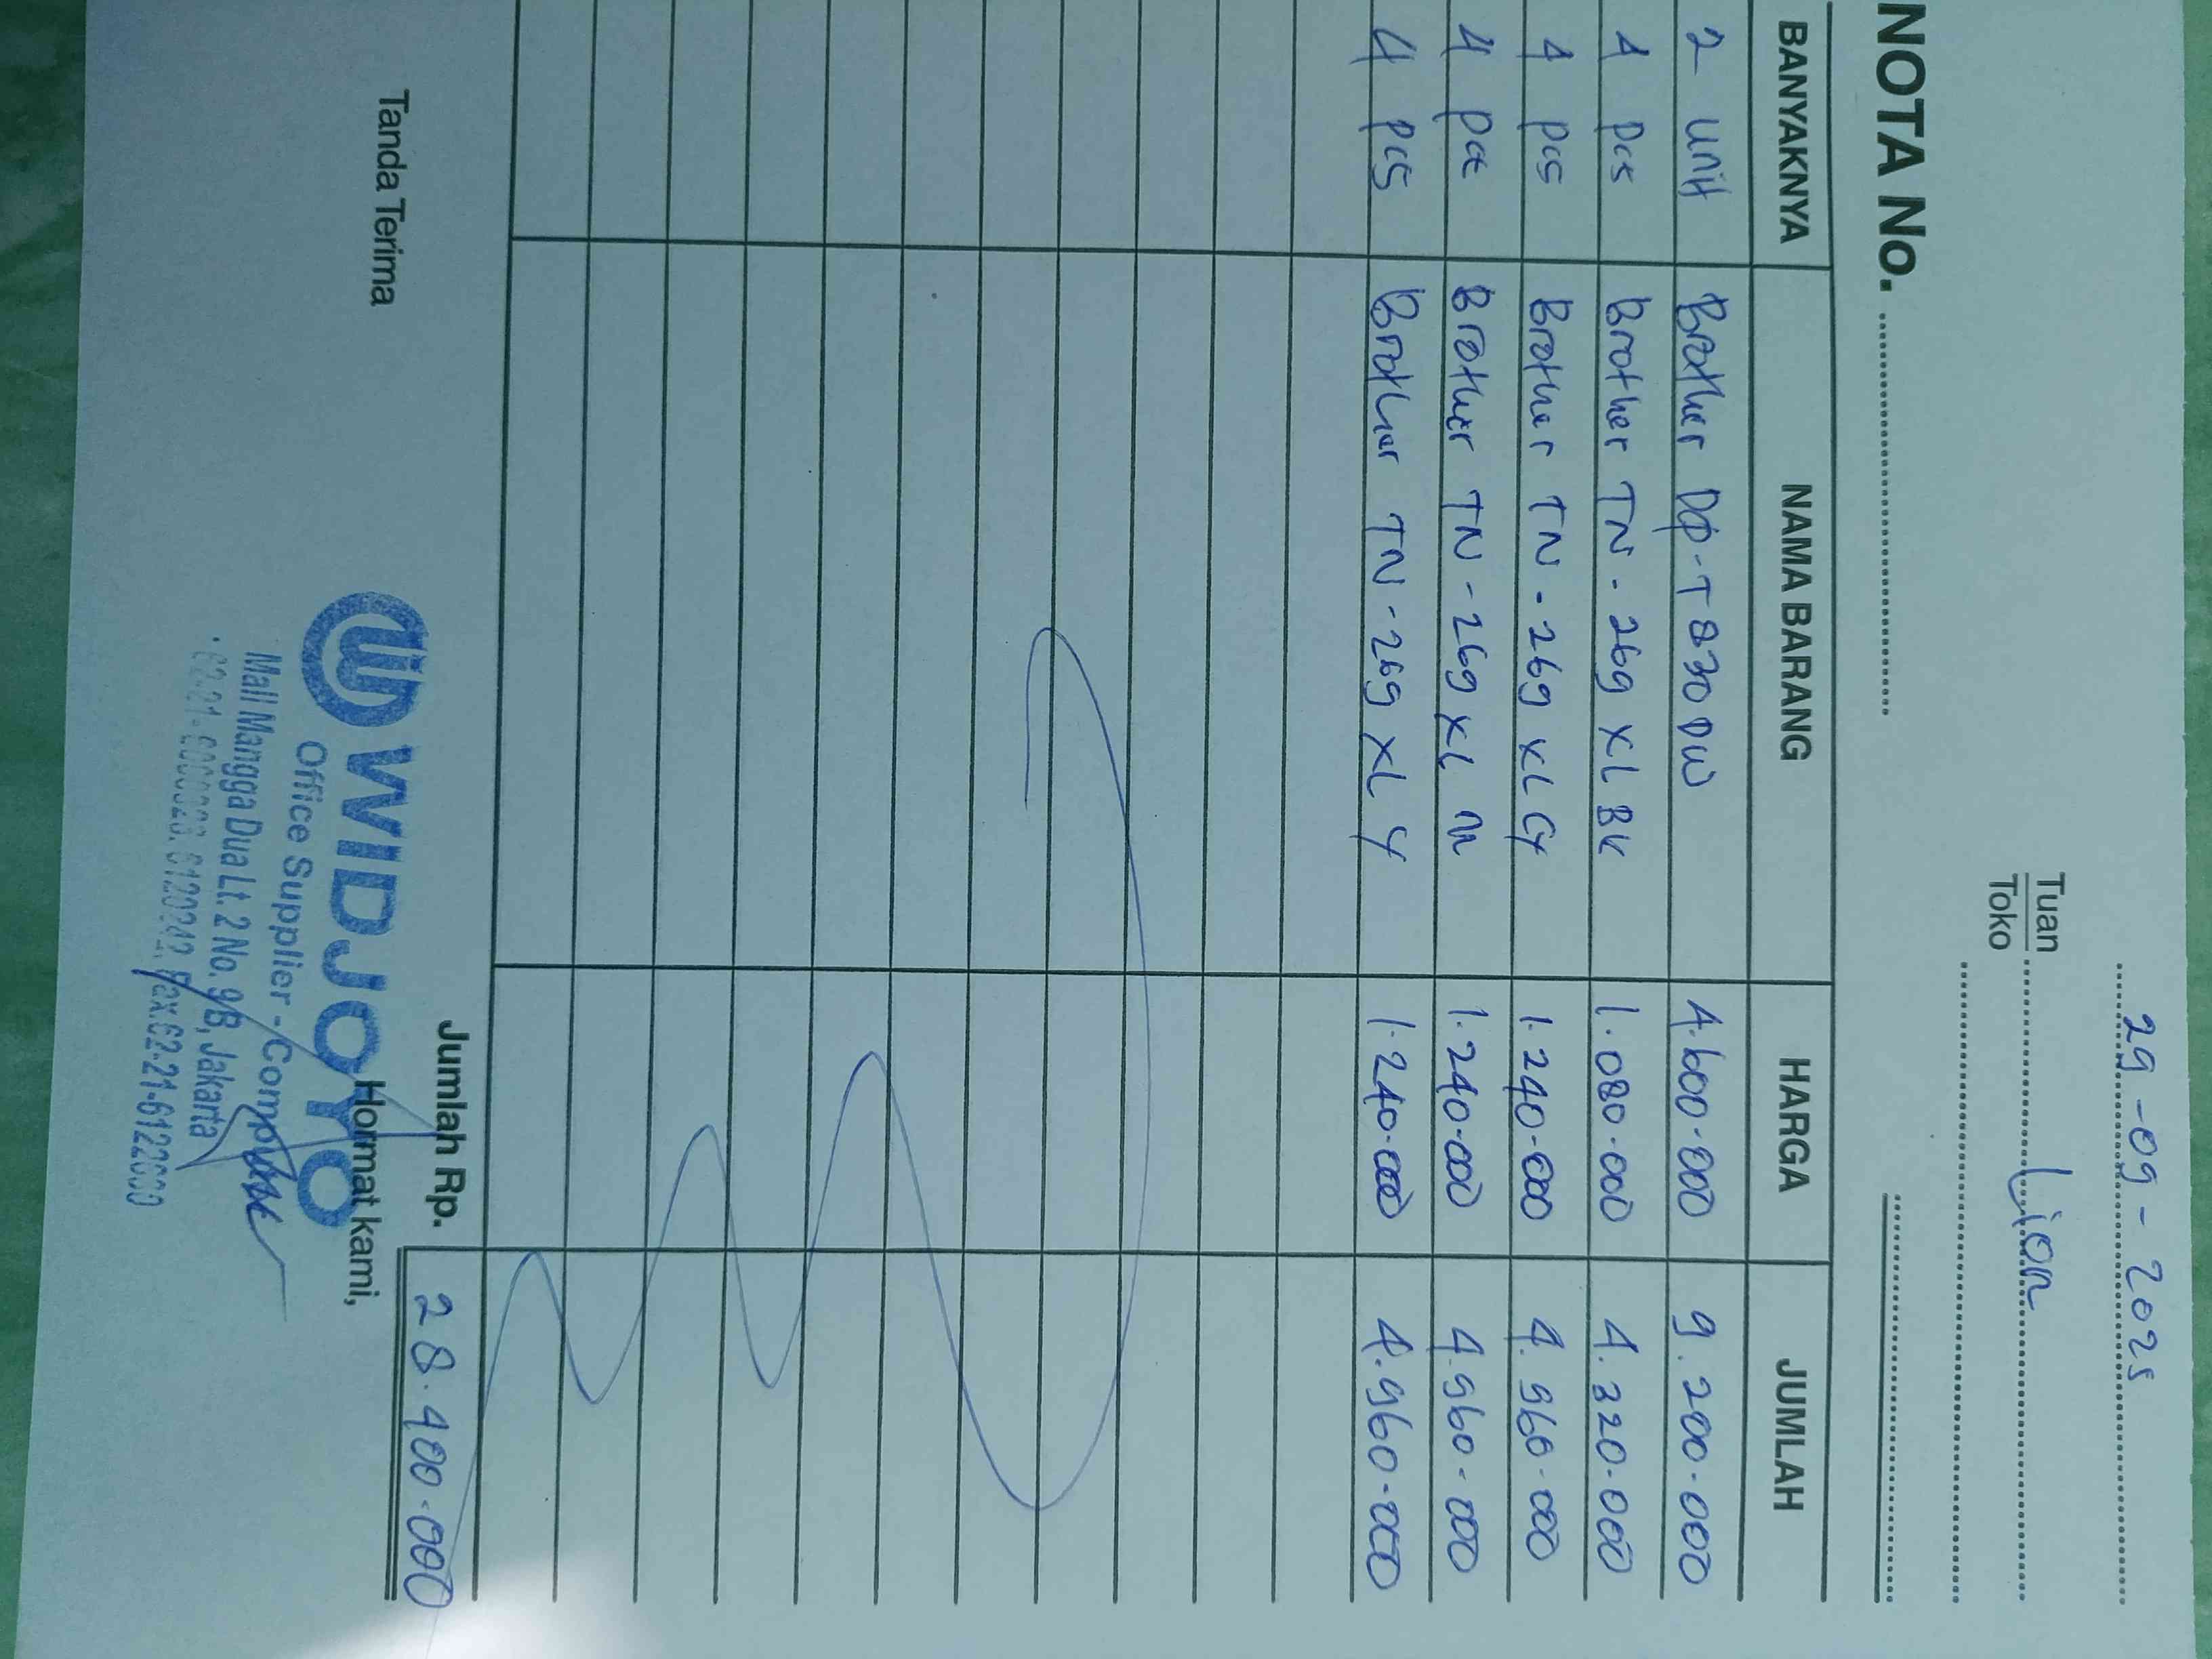 29-09-2025
Tuan Lion
Toko
NOTA No.
BANYAKNYA NAMA BARANG HARGA JUMLAH
2 unit Brother DCP-T830DW 4.600.000 9.200.000
4 pcs Brother TN-269 XL BK 1.080.000 4.320.000
4 pcs Brother TN-269 XL CY 1.240.000 4.960.000
4 pcs Brother TN-269 XL M 1.240.000 4.960.000
4 pcs Brother TN-269 XL Y 1.240.000 4.960.000
Jumlah Rp. 28.400.000
Tanda Terima Hormat kami,
WIDJOYO
Office Supplier - Computer
Mall Mangga Dua Lt. 2 No. 9/B, Jakarta
Fax.62-21-6122000